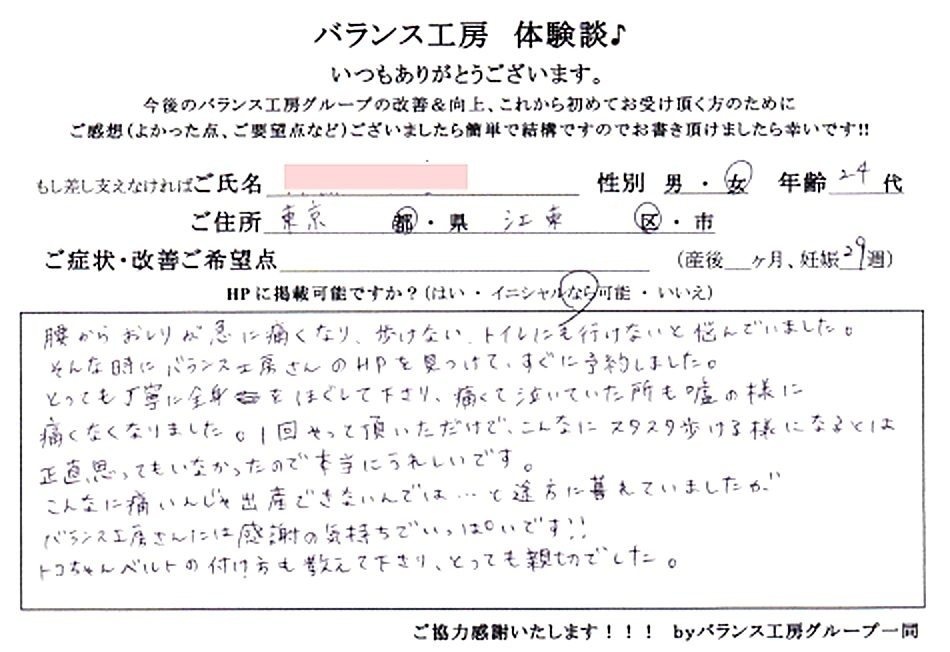 バランス工房 体験談♪
いつもありがとうございます。
今後のバランス工房グループの改善＆向上、これから初めてお受け頂く方のために
ご感想（よかった点、ご要望点など）ございましたら簡単で結構ですのでお書き頂けましたら幸いです!!
もし差し支えなければご氏名 性別 男・女 年齢 24 代
ご住所 東京 都・県 江東 区・市
ご症状・改善ご希望点 （産後__ヶ月、妊娠29週）
HPに掲載可能ですか？（はい ・ イニシャルなら可能 ・ いいえ）
腰からおしりが急に痛くなり、歩けない、トイレにも行けないと悩んでいました。
そんな時にバランス工房さんのHPを見つけて、すぐに予約しました。
とっても丁寧に全身をほぐして下さり、痛くて泣いていた所も嘘の様に
痛くなくなりました。1回やって頂いただけで、こんなにスタスタ歩ける様になるとは
正直、思ってもいなかったので本当にうれしいです。
こんなに痛いんじゃ出産できないんでは…と途方に暮れていましたが、
バランス工房さんには感謝の気持ちでいっぱいです!!
トコちゃんベルトの付け方も教えて下さり、とっても親切でした。
ご協力感謝いたします！！！ byバランス工房グループ一同